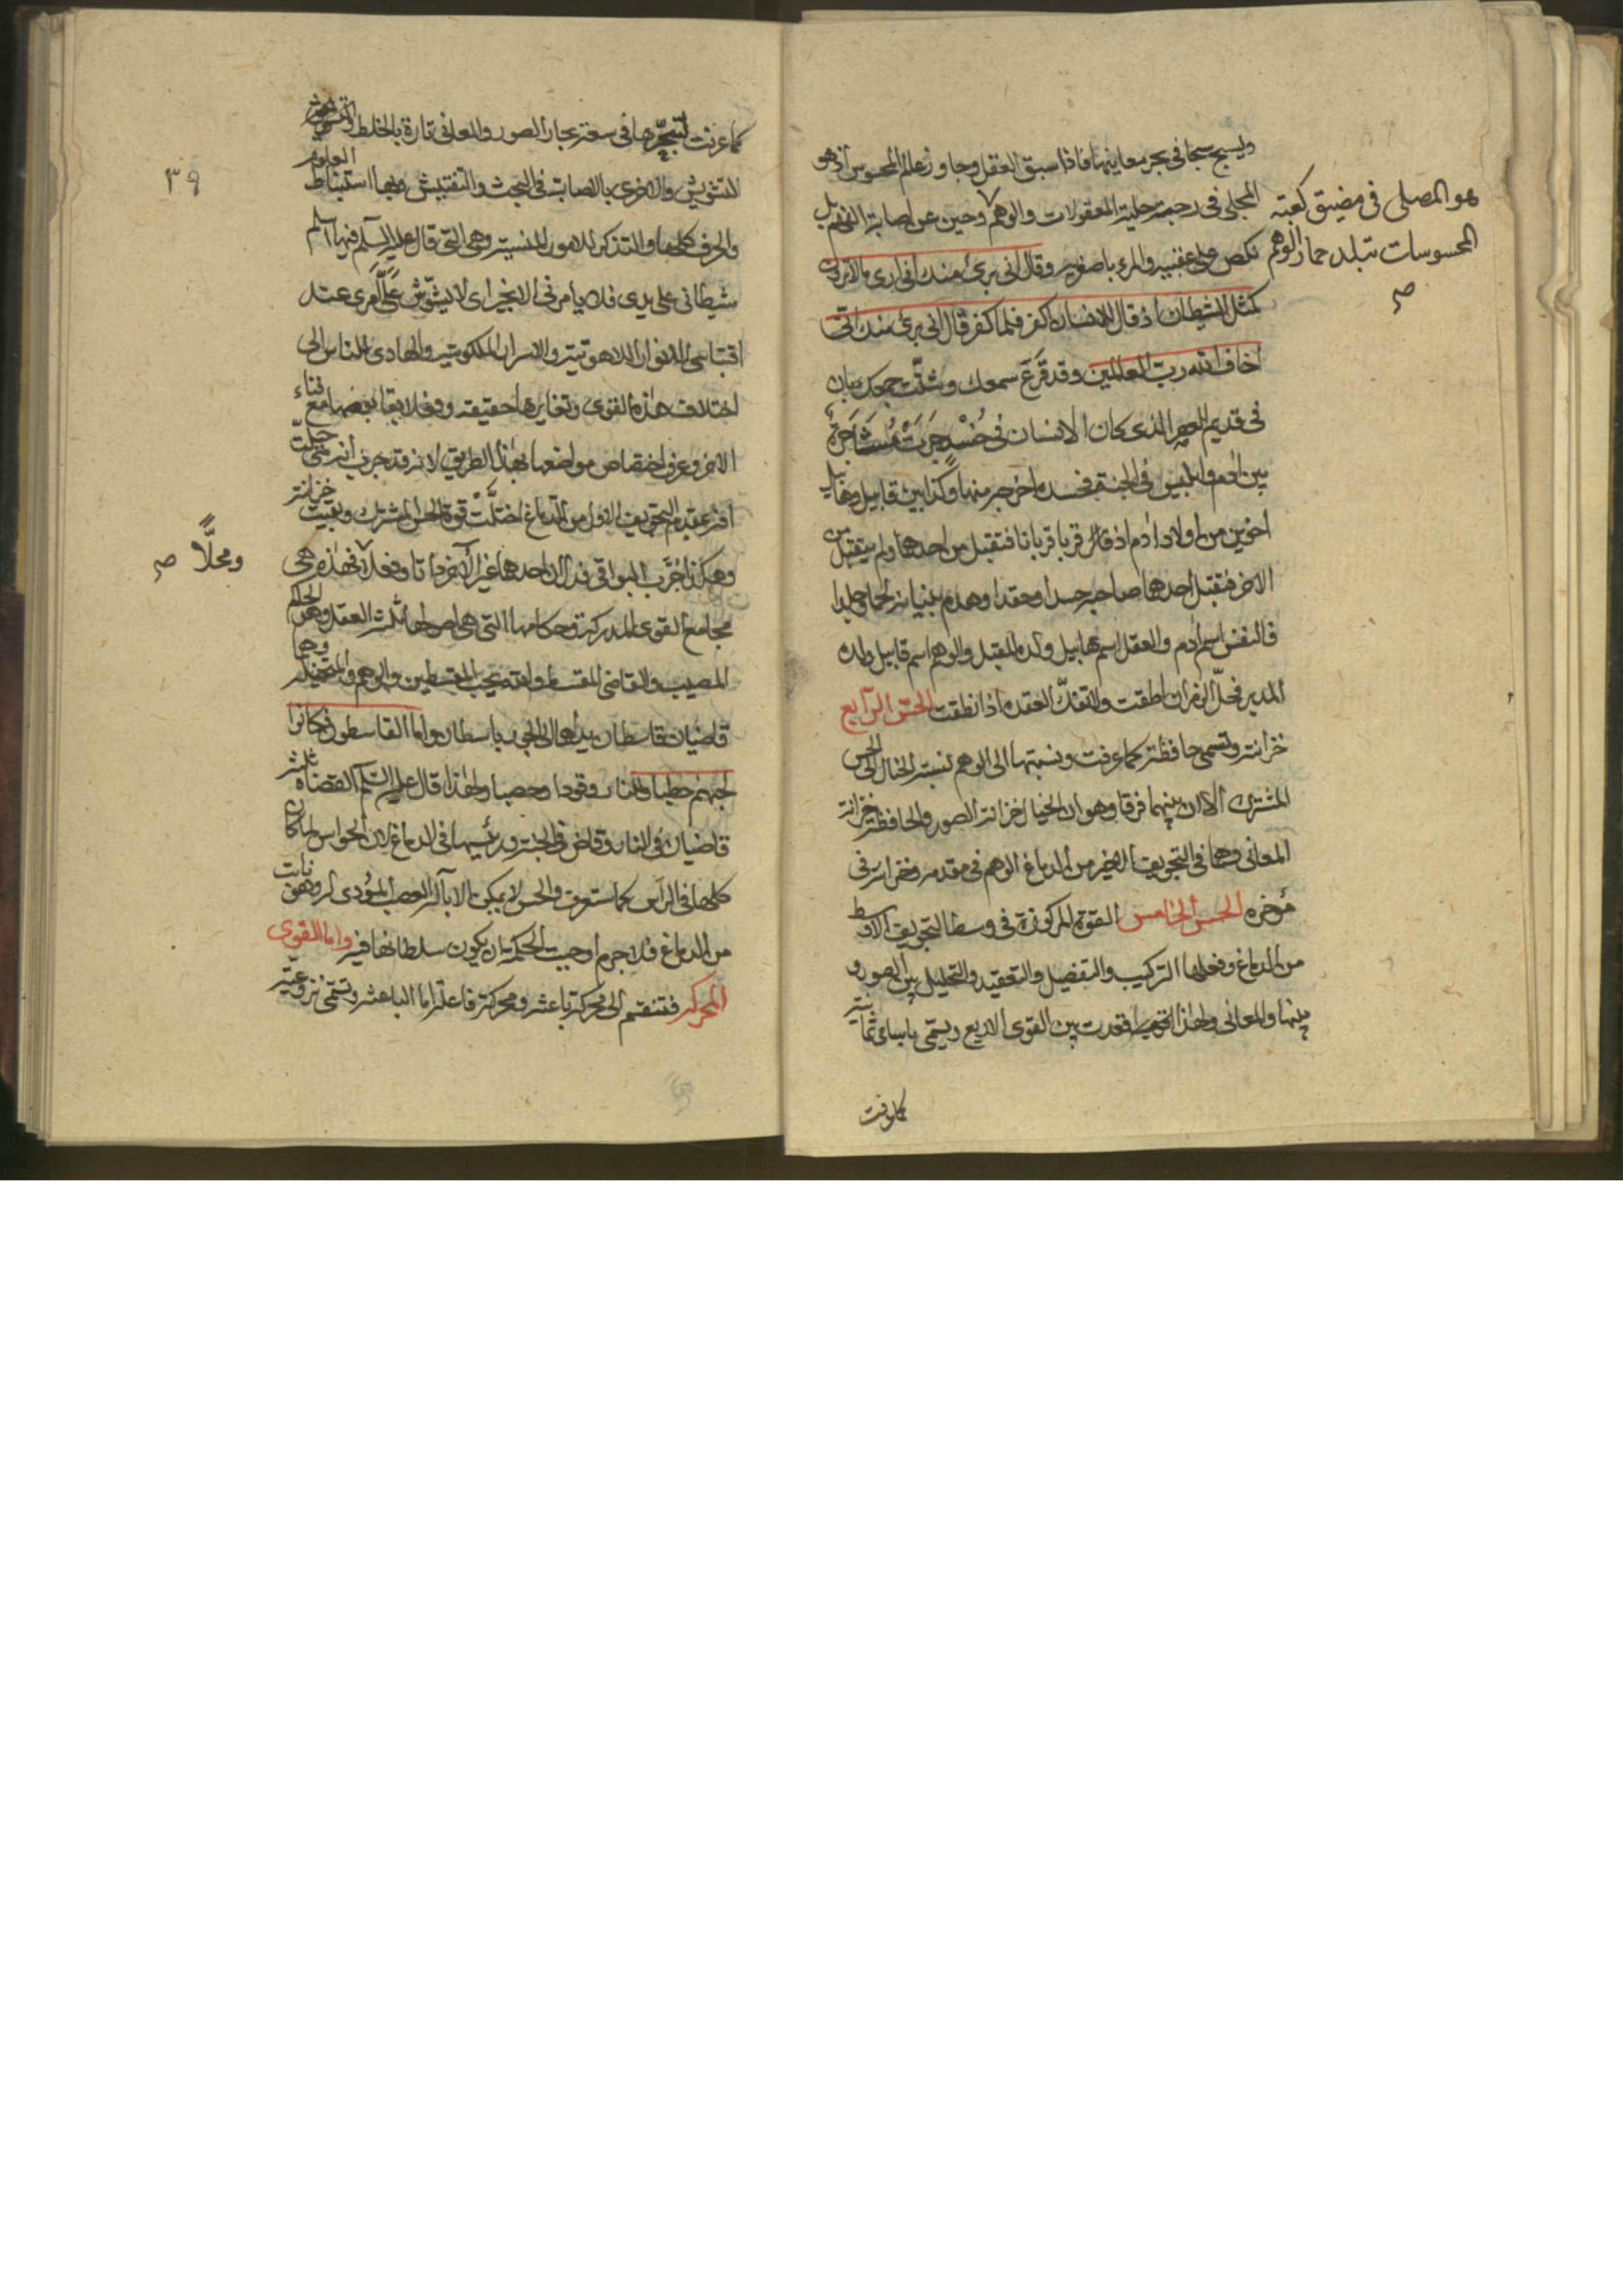 وليسبح سبحا في بحر معاينها فاذا سبق العقل وجاوز عالم المحسوس اذ هو
المجلي في رحبة حلية المعقولات والوهم وحين عن اصابة الفهم بل
هو المصلي في مضيق كعبة
المحسوسات تبلد حمار الوهم
صح
نكص على عقبيه والمرء باصغريه وقال اني بريء منك اني ارى ما لا ترون
كمثل الشيطان اذ قال للانسان اكفر فلما كفر قال اني بريء منك اني
اخاف الله رب العالمين وقد قرع سمعك وشتت جمعك بيان
في قديم العهد الذي كان الانسان في خسر جرت مشاجرة
بين ادم وابليس في الجنة فحسده واخرجه منها وكذا بين قابيل وهابيل
اخوين من اولاد ادم اذ قال قربا قربانا فتقبل من احدهما ولم يتقبل من
الاخر فقتل احدهما صاحبه حسدا وحقدا وهدم بنيانه لحما وجلدا
فالنفس اسم ادم والعقل اسم هابيل ولده المقبل والوهم اسم قابيل ولده
المدبر فحل الرمز ان اطقت والتفك العقده اذا نطقت الحس الرابع
خزانته وتسمى حافظة كما عرفت ونسبتها الى الوهم نسبة الخيال الى الحس
المشترك الا ان بينهما فرقا وهو ان الخيال خزانة الصور والحافظة خزانة
المعاني وهما في التجويف الاخير من الدماغ الوهم في مقدمه وخزانته في
مؤخره الحس الخامس القوة المركوزة في وسط التجويف الاوسط
من الدماغ وفعلها التركيب والتفصيل والتعقيد والتحليل بين الصور و
بينها والمعاني ولهذا التوسط افقدت بين القوى الاربع ويسمى باسامي ثمانية
كما عرفت
٣٩
كما عرفت لتبحرها في سعة بحار الصور والمعاني تارة بالخلط والتهويش
للتشويش والاخرى بالصابة في البحث والتفتيش وبها استنباط العلوم
والحرف كلها والتذكر للامور المنسية وهي التي قال عليه السلم فيها اسلم
شيطاني على يدي فلا يامرني الا بخير اي لا يشوش علي امري عند
اقتباس الانوار اللاهوتية والاسرار الملكوتية والهادي للناس الى
اختلاف هذه القوى وتغايرها حقيقة وفعلا بقا بعضها مع فناء
الاخر وعرف اختصاص مواضعها بهذا الطريق لانه قد جرب انه متى حلت
افة مقدم التجويف الاول من الدماغ اختلت قوة الحس المشترك وبقيت خزانته
وهكذا جرب البواقي فدل ان احدهما غير الاخر ذاتا وفعلا فهذه هي
ومحلا صح
مجامع القوى المدركة وحكامها التي هي اصولها ثلث العقل وهو الحاكم
المصيب والقاضي المقسط والله يحب المقسطين والوهم والمتخيلة وهما
قاضيان قاسطان بيداهما الى الجور باسطان واما القاسطون فكانوا
لجهنم حطبا وللنار وقودا وحصبا ولهذا قال عليه السلم القضاة ثلثة
قاضيان في النار وقاض في الجنة ورئيسها في الدماغ لان الحواس لما كان
كلها في الراس كما ستعرف والحس لا يمكن الا بالة العصب المؤدى له وهو نابت
من الدماغ فلا جرم اوجبت الحكمة ان يكون سلطانها فيه واما القوى
المحركة فتنقسم الى محركة باعثة ومحركة فاعلة اما الباعثة وتسمى نزوعية